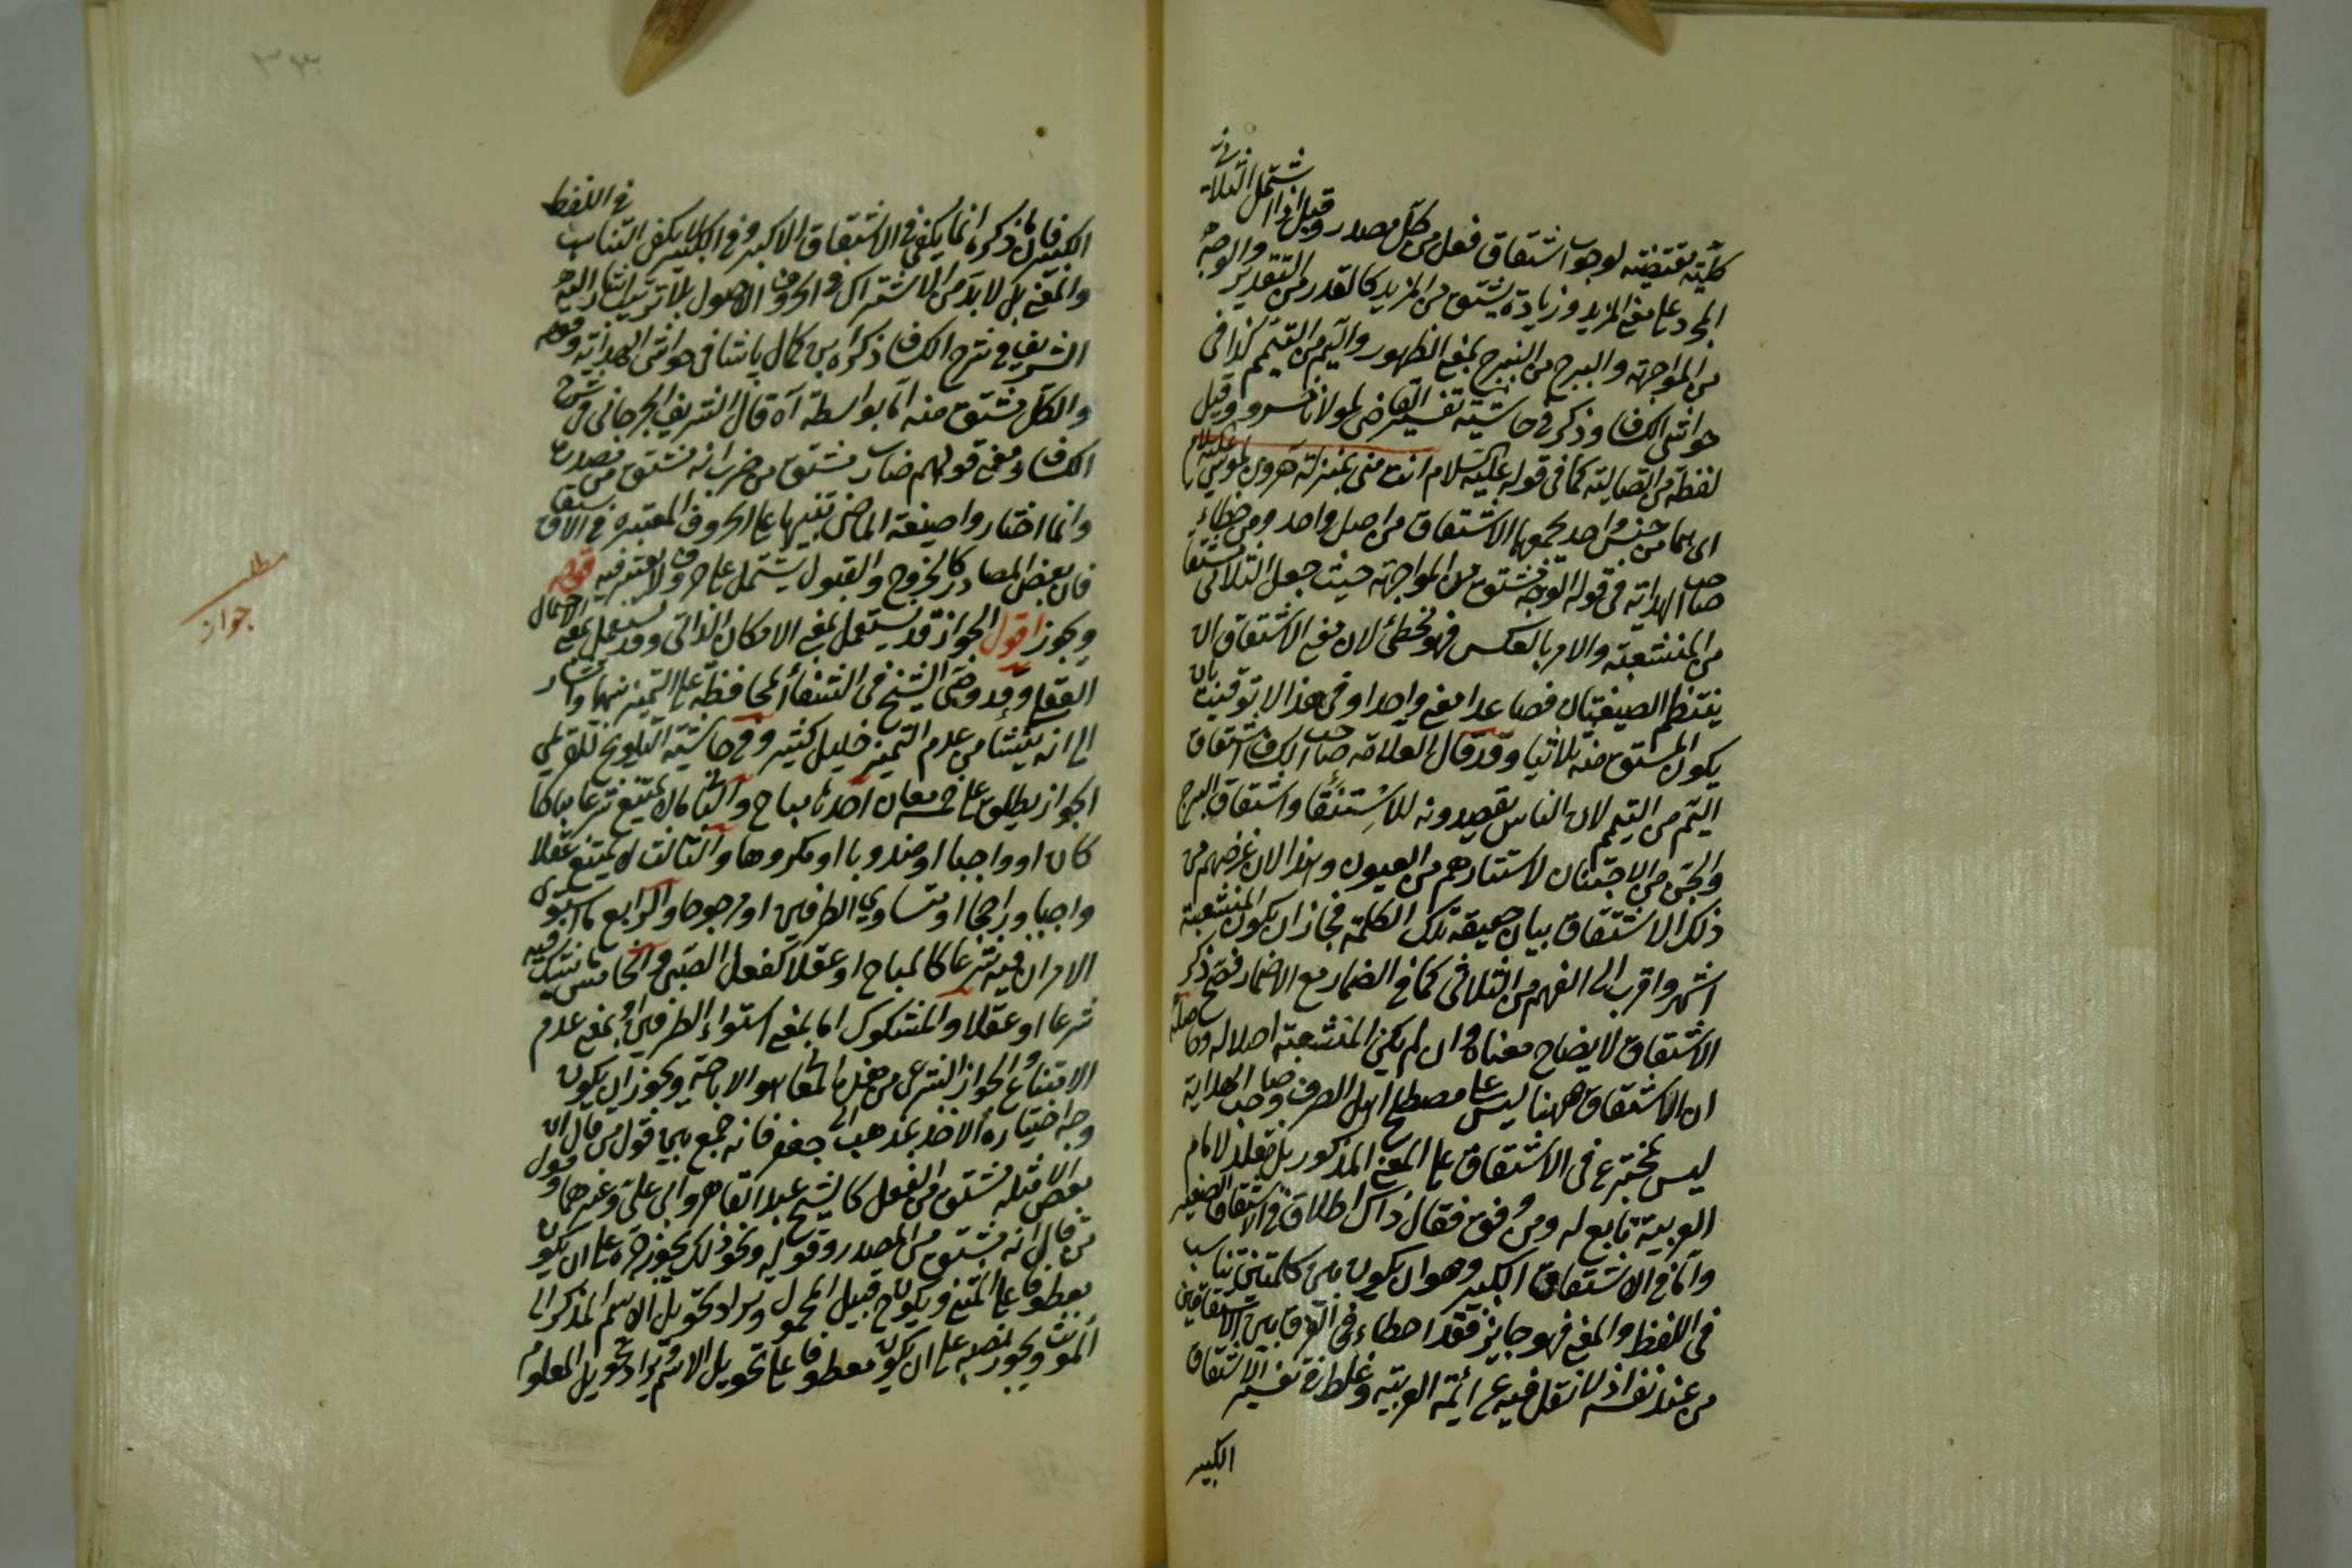 كلية مقتضية لوجوب اشتقاق فعل من كل مصدر وقيل اذا اشتمل الثلاثى
المجرد على معنى المزيد وزيادة يشتق من المزيد كالقدر من التقدير والوجه
من المواجهة والبرج من التبرج بمعنى الظهور واليم من التيمم كذا فى
حواشى الكشاف وذكر فى حاشية تفسير القاضى لمولانا خسرو وقيل
لفظة من اتصالية كما فى قوله عليه السلام انت منى بمنزلة هرون من موسى عليه السلام
اى هما من جنس واحد يجمعهما الاشتقاق من اصل واحد ومن خطاء
صاحب الهداية فى قوله الوجه مشتق من المواجهة حيث جعل الثلاثى مشتقا
من المنشعبة والامر بالعكس فهو مخطئ لان معنى الاشتقاق ان
ينتظم الصيغتان فصاعدا معنى واحدا وفى هذا لا توقيت بان
يكون المشتق منه ثلاثيا وقد قال العلامة صاحب الكشاف اشتقاق
اليم من التيمم لان الناس يقصدونه للاستقاء واشتقاق البرج
والجن من الاجتنان لاستتارهم من العيون وهذا لان غرضهم من
ذلك الاشتقاق بيان حقيقة تلك الكلمة فجاز ان يكون المنشعبة
اشهر واقرب الى الفهم من الثلاثى كما فى الضمار مع الاضمار فصح ذكر
الاشتقاق لايضاح معناه وان لم يكن المنشعبة اصلا له وحاصله
ان الاشتقاق ههنا ليس على مصطلح اهل الصرف وصاحب الهداية
ليس بمخترع فى الاشتقاق على المعنى المذكور بل مقلد لامام
العربية تابع له ومن فوق فقال ذاك اطلاق فى الاشتقاق الصغير
واما فى الاشتقاق الكبير وهو ان يكون بين كلمتين تناسب
فى اللفظ والمعنى فهو جايز فقد اخطاء فى الفرق بين الاشتقاقين
من عند نفسه اذ لا نقل فيه عن ائمة العربية وغلط فى تفسير الاشتقاق
الكبير
الكبير فان ما ذكره انما يكفى فى الاشتقاق الاكبر وفى الكبير لا يكفى التناسب فى اللفظ
والمعنى بل لا بد من الاشتراك فى الحروف الاصول بلا ترتيب اشار اليه
الشريف فى شرح الكشاف ذكره ابن كمال پاشا فى حواشى الهداية قوله
والكل مشتق منه اما بواسطة آه قال الشريف الجرجانى فى شرح
الكشاف ومعنى قولهم ضارب مشتق من ضرب انه مشتق من مصدره
وانما اختاروا صيغة الماضى تنبيها على الحروف المعتبرة فى الاشتقاق
فان بعض المصادر كالخروج والقبول يشتمل على حروف لا تعتبر فيه قوله
ويجوز اقول الجواز قد يستعمل بمعنى الامكان الذاتى وقد يستعمل بمعنى الاحتمال
العقلى وقد وصى الشيخ فى الشفاء المحافظة على التميز بينهما واشار
الى انه ينشا من عدم التميز خلل كثير وفى حاشية التلويح
الجواز يطلق على خمسة معان احدها مباح والثانى ما لا يمتنع شرعا مباحا
كان او واجبا او مندوبا او مكروها والثالث ما لا يمتنع عقلا
واجبا وراجحا او متساوى الطرفين او مرجوحا والرابع ما استوى
الامران فيه شرعا كالمباح او عقلا كفعل الصبى والخامس ما شك فيه
شرعا او عقلا والمشكوك اما بمعنى استواء الطرفين او بمعنى عدم
الامتناع والجواز الشرعى من هذه المعانى هو الاباحة ويجوز ان يكون
وجه اختياره الاخذ بمذهب ابى جعفر فانه جمع بين قول من قال ان
بعض الامثلة مشتق من الفعل كالشيخ عبد القاهر وابى على وغيرهما وقول
من قال انه مشتق من المصدر وقوله ونحو ذلك يجوز جره على ان يكون
معطوفا على المثنى ويكون من قبيل المحمول ويراد تحويل الاسم المذكر الى
المؤنث ويجوز نصبه على ان يكون معطوفا على تحويل الاسم ويراد تحويل المعلوم
مط
جواز